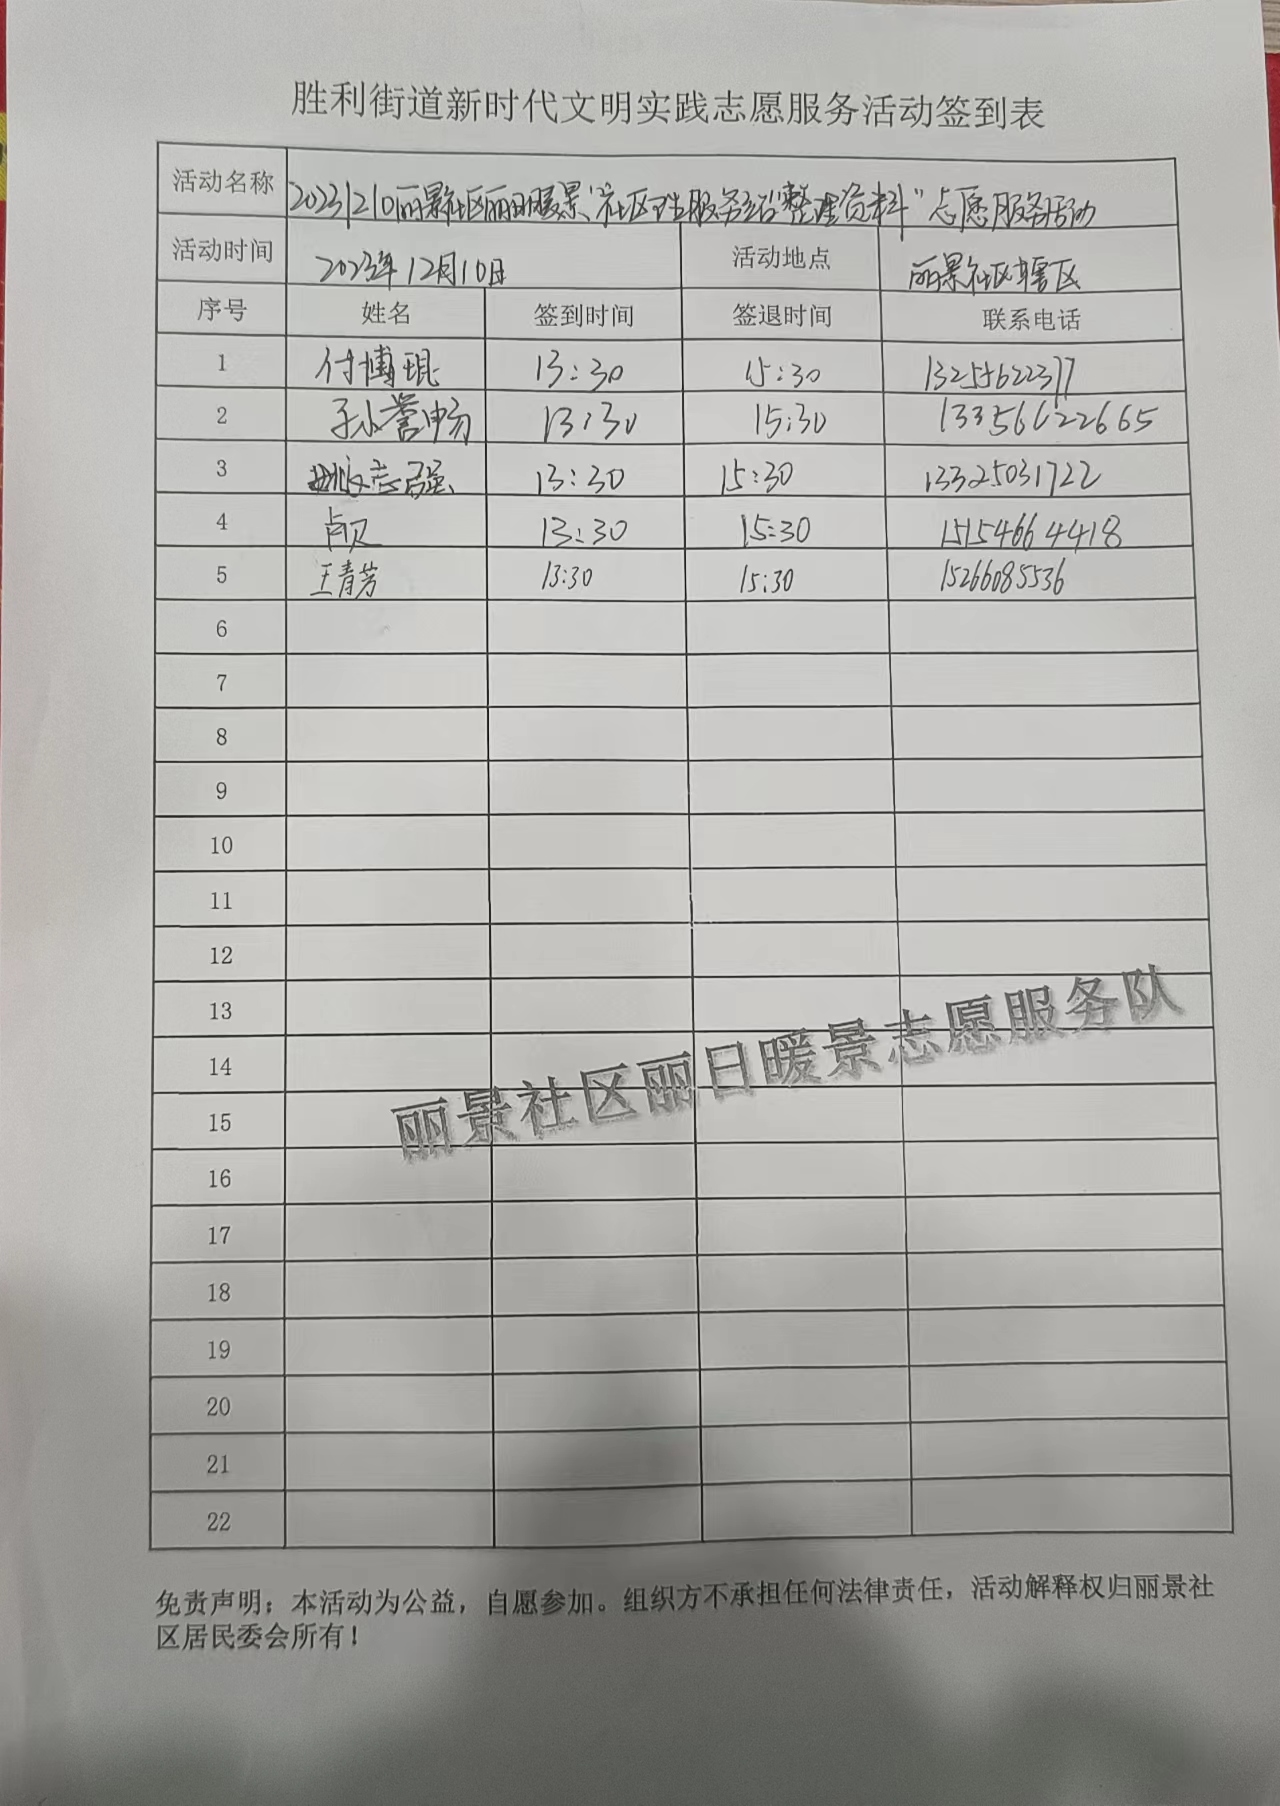 胜利街道新时代文明实践志愿服务活动签到表
活动名称 20231210丽景社区丽日暖景"社区 服务站整理资料"志愿服务活动
活动时间 2023年12月10日 活动地点 丽景社区辖区
序号 姓名 签到时间 签退时间 联系电话
1 付博琨 13:30 15:30 13255622377
2 誉畅 13:30 15:30 13356622665
3 志强 13:30 15:30 13325031722
4 13:30 15:30 15154664418
5 王青芳 13:30 15:30 15266085536
6
7
8
9
10
11
12
13
14
15
16
17
18
19
20
21
22
丽景社区丽日暖景志愿服务队
免责声明：本活动为公益，自愿参加。组织方不承担任何法律责任，活动解释权归丽景社
区居民委会所有！